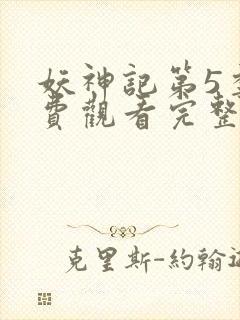 妖神記第5
費觀看完整
克里斯-約翰遜